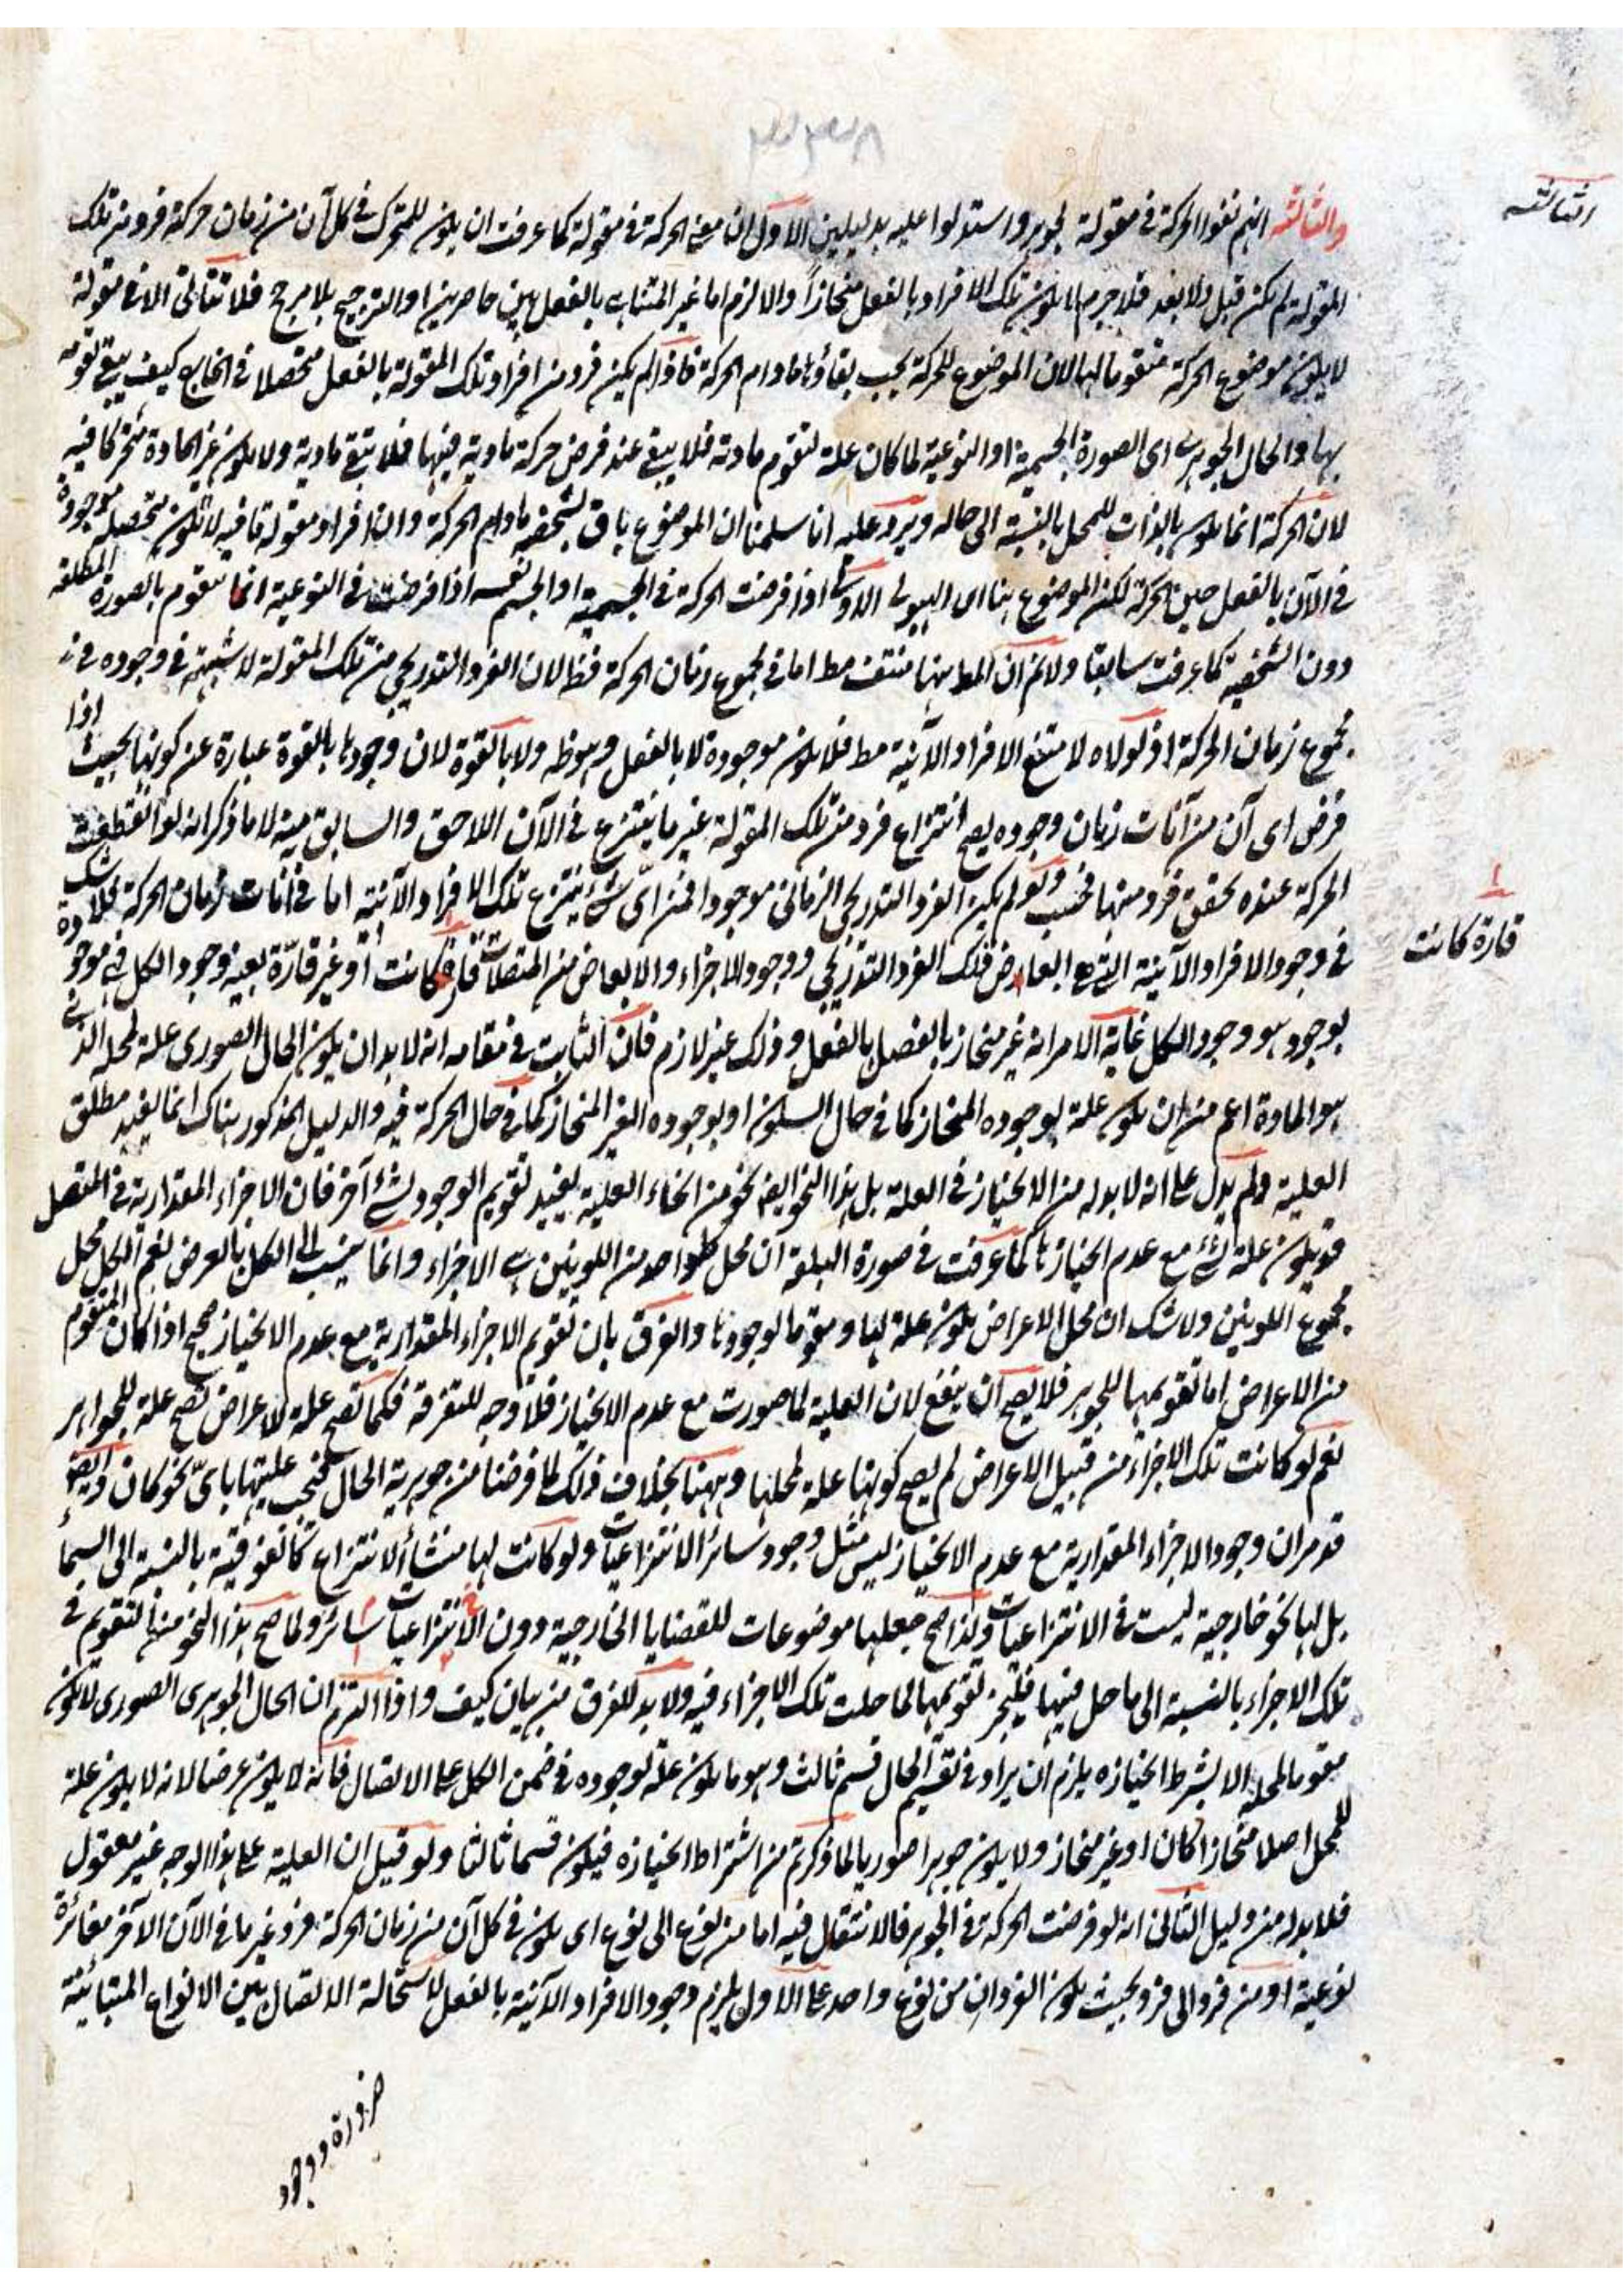 الثالثة
والثالثة انهم نفوا الحركة في مقولة الجوهر واستدلوا عليه بدليلين الاول ان معنى الحركة في مقولة كما عرفت ان يكون للمتحرك في كل آن من زمان حركة فرد من تلك
المقولة لم يكن قبل ولا بعد فلا جرم لا يكون تلك الافراد بالفعل منحازاً والا لزم اما غير المتناهي بالفعل بين حاصرين او الترجيح بلا مرجح فلا تقال الا في مقولة
لا يكون موضوع الحركة متقوما لها لان الموضوع للحركة يجب بقاؤه ما دام الحركة فاذا لم يكن فرد من افراد تلك المقولة بالفعل متحصلا في الخارج كيف يبقى تقومه
بها والحال الجوهرى اى الصورة الجسمية او النوعية لما كان علة لتقوم مادته فلا يبقى عند فرض حركة مادية فيها فلا تبقى مادية ولا يكون غير المادة متحركا فيه
لان الحركة انما يكون بالذات للمحل بالنسبة الى حاله ويرد عليه انا سلمنا ان الموضوع باق بشخصه مادام الحركة وان افراد مقولة ما فيه لا تكون متحصلة موجودة
في الآن بالفعل حين الحركة لكن الموضوع هنا اى الهيولى الاولى اذا فرضت الحركة في الجسمية او الجسم نفسه اذا فرضت في النوعية انما يتقوم بالصورة المطلقة
دون الشخصية كما عرفت سابقا ولا نم ان المط منها منتف مط اما في مجموع زمان الحركة فظ لان الفرد التدريجى من تلك المقولة لا شبهة في وجوده في
مجموع زمان الحركة اذ لولاه لا متنع الافراد الآنية مط فلا يكون موجودة لا بالفعل وهو ظه ولا بالقوة لان وجودها بالقوة عبارة عن كونها بحيث اذا
فرض اى آن من آنات زمان وجوده يصح انتزاع فرد من تلك المقولة غير ما ينتزع في الآن اللاحق والسابق منه لا ما ذكر انه لو انقطعت
الحركة عنده تحقق فرد منها فحسب ولو لم يكن الفرد التدريجى الزمانى موجودا فمن اىّ شئ ينتزع تلك الافراد الآنية اما في آنات زمان الحركة فلا شك
في وجود الافراد الآنية التى هى ابعاض ذلك الفرد التدريجى ووجود الاجزاء والابعاض من المتصلات قارة كانت أو غير قارّة بعينه وجود الكل فهى موجودة
قارة كانت
بوجود هو وجود الكل غاية الامر انه غير منحاز بالفصل بالفعل وذلك غير لازم فان الثابت في مقامه انه لا بد ان يكون الحال الصورى علة لمحله الذى
هو المادة اعم من ان يكون علة بوجوده المنحاز كما في حال السكون او بوجوده الغير المنحاز كما في حال الحركة فيه والدليل المذكور هناك انما يفيد مطلق
العلية ولم يدل على انه لا بد له من الانحياز في العلة بل هذا النحو ايضا نحو من انحاء العلية يفيد تقويم الوجود لشئ آخر فان الاجزاء المقدارية في المتصل
قد يكون علة لشئ مع عدم انحيازها كما عرفت في صورة البلقة ان محل كل واحد من اللونين هى الاجزاء وانما ينسب الى الكل بالعرض نعم الكل محل
مجموع اللونين ولا شك ان محل الاعراض يكون علة لها ومقوما لوجودها والفرق بان تقويم الاجزاء المقدارية مع عدم الانحياز صحيح اذا كان المتقوم
من الاعراض اما تقويمها للجوهر فلا يصح ان ينفع لان العلية لما صورت مع عدم الانحياز فلا وجه للتفرقة فكما تصح علة للاعراض تصح علة للجواهر
نعم لو كانت تلك الاجزاء من قبيل الاعراض لم يصح كونها علة لمحلها وههنا بخلاف ذلك لما فرضنا من جوهرية الحال فيجب عليتها باىّ نحو كان وايضا
قد مر ان وجود الاجزاء المقدارية مع عدم الانحياز ليس مثل وجود سائر الانتزاعيات ولو كانت لها منشأ لانتزاع كالفوقية بالنسبة الى السماء
بل لها نحو خارجية ليست في الانتزاعيات ولذا صح جعلها موضوعات للقضايا الخارجية دون الانتزاعيات سائر ولما صح هذا النحو منها لتقويم في
تلك الاجزاء بالنسبة الى ما حل فيها فليجز تقويمها لما حلت تلك الاجزاء فيه ولا بد للفرق من بيان كيف واذا التزم ان الحال الجوهرى الصورى لا يكون
مقوما لمحله الا بشرط انحيازه يلزم ان يزاد في تقسيم الحال قسم ثالث وهو ما يكون علة بوجوده في ضمن الكل على الاتصال فانه لا يكون عرضا لانه لا يكون علة
للمحل اصلا منحازا كان او غير منحاز ولا يكون جوهرا صوريا لما ذكرتم من اشتراط انحيازه فيكون قسما ثالثا ولو قيل ان العلية على هذا الوجه غير معقول
فلا بد له من دليل الثانى انه لو فرضت الحركة في الجوهر فالانتقال فيه اما من نوع الى نوع اى يكون في كل آن من زمان الحركة فرد غير ما في الآن الآخر مغائرة
نوعية او من فرد الى فرد بحيث يكون الفردان من نوع واحد على الاول يلزم وجود الافراد الآنية بالفعل لاستحالة الاتصال بين الانواع المتبائنة
ضرورة وجود